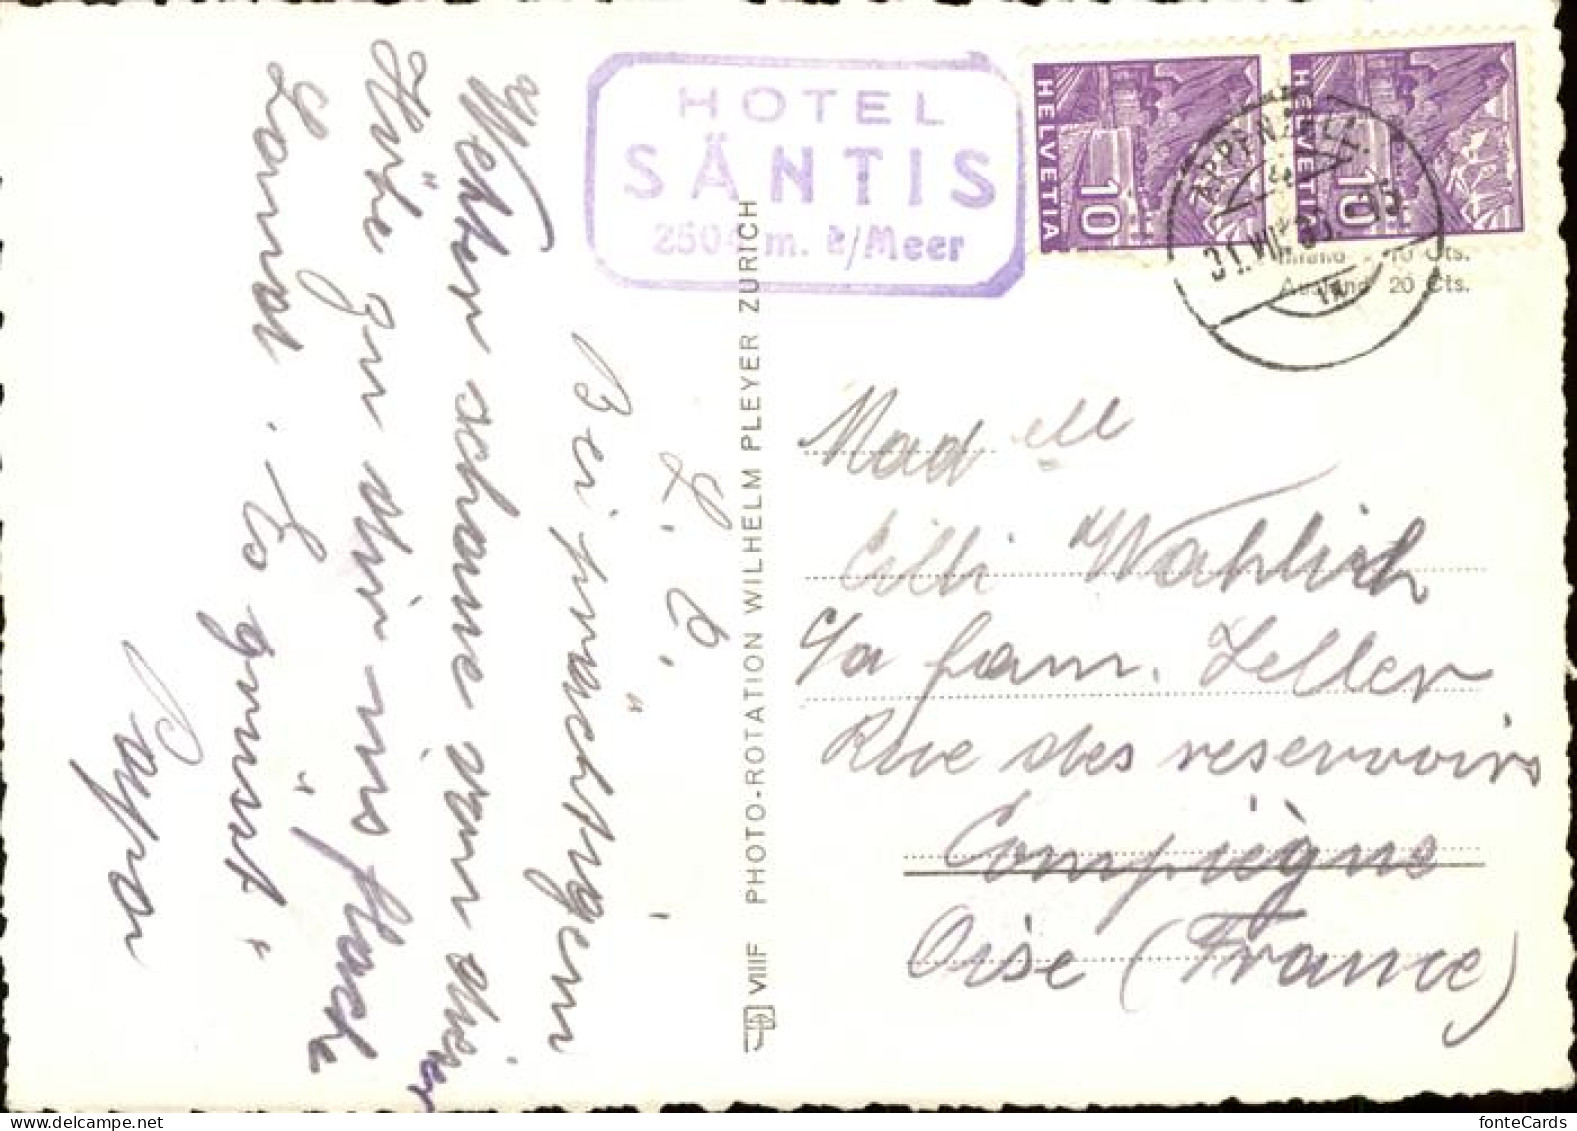 HOTEL
SÄNTIS
2504 m. ü/Meer
HELVETIA
10
HELVETIA
10
APPENZELL
31.VII.
Inland 10 Cts.
Ausland 20 Cts.
L. C.
Bei prächtigem
Wetter schaue von dieser
Höhe zu dir ins flache
Land. Es grüsst
PHOTO-ROTATION WILHELM PLEYER ZÜRICH
VIIIF
Mad ell
Cilli Wahlich
c/a fam. Zeller
Rue des reservoirs
Compiègne
Oise (France)
fonteCards